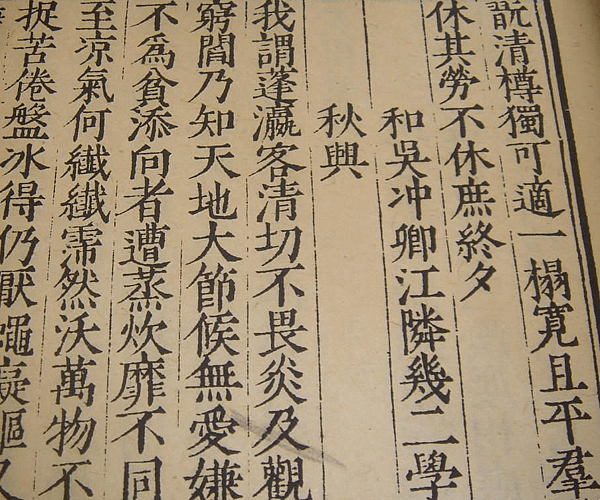 清樽獨可適一榻寬且平羣
休其勞不休庶終夕
和吳冲卿江隣幾二學
秋興
我謂蓬瀛客清切不畏炎及觀
窮閻乃知天地大節候無愛嫌
不爲貧添向者遭蒸炊靡不同
至凉氣何纖纖霈然沃萬物不
捉苦倦盤冰得仍厭蠅癡驅又